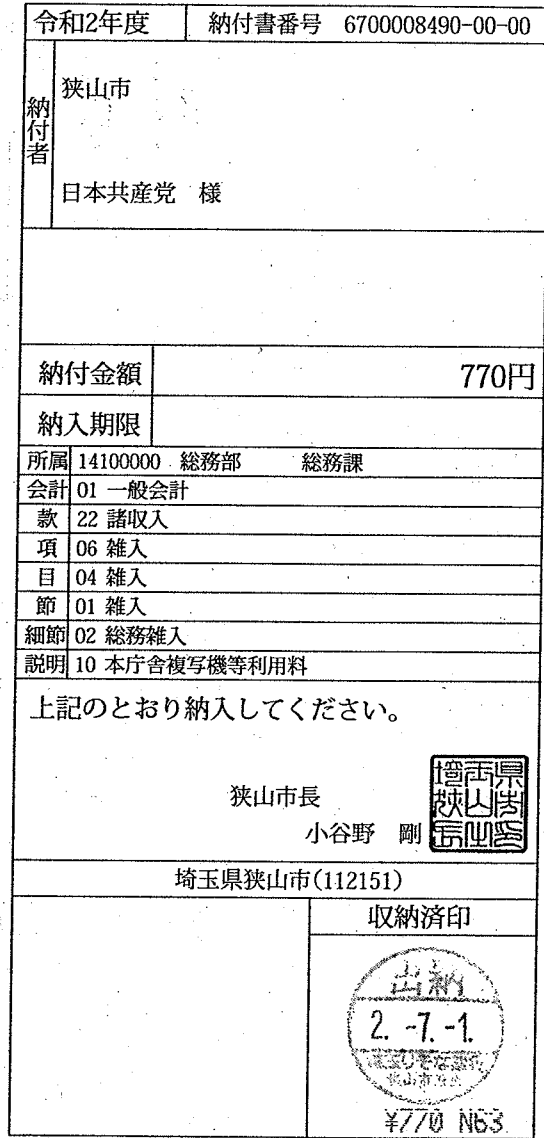 令和2年度 納付書番号 6700008490-00-00
納付者
狭山市
日本共産党 様
納付金額 770円
納入期限
所属 14100000 総務部 総務課
会計 01 一般会計
款 22 諸収入
項 06 雑入
目 04 雑入
節 01 雑入
細節 02 総務雑入
説明 10 本庁舎複写機等利用料
上記のとおり納入してください。
狭山市長
小谷野 剛
埼玉県狭山市(112151)
収納済印
出納
2.-7.-1.
¥770 N63